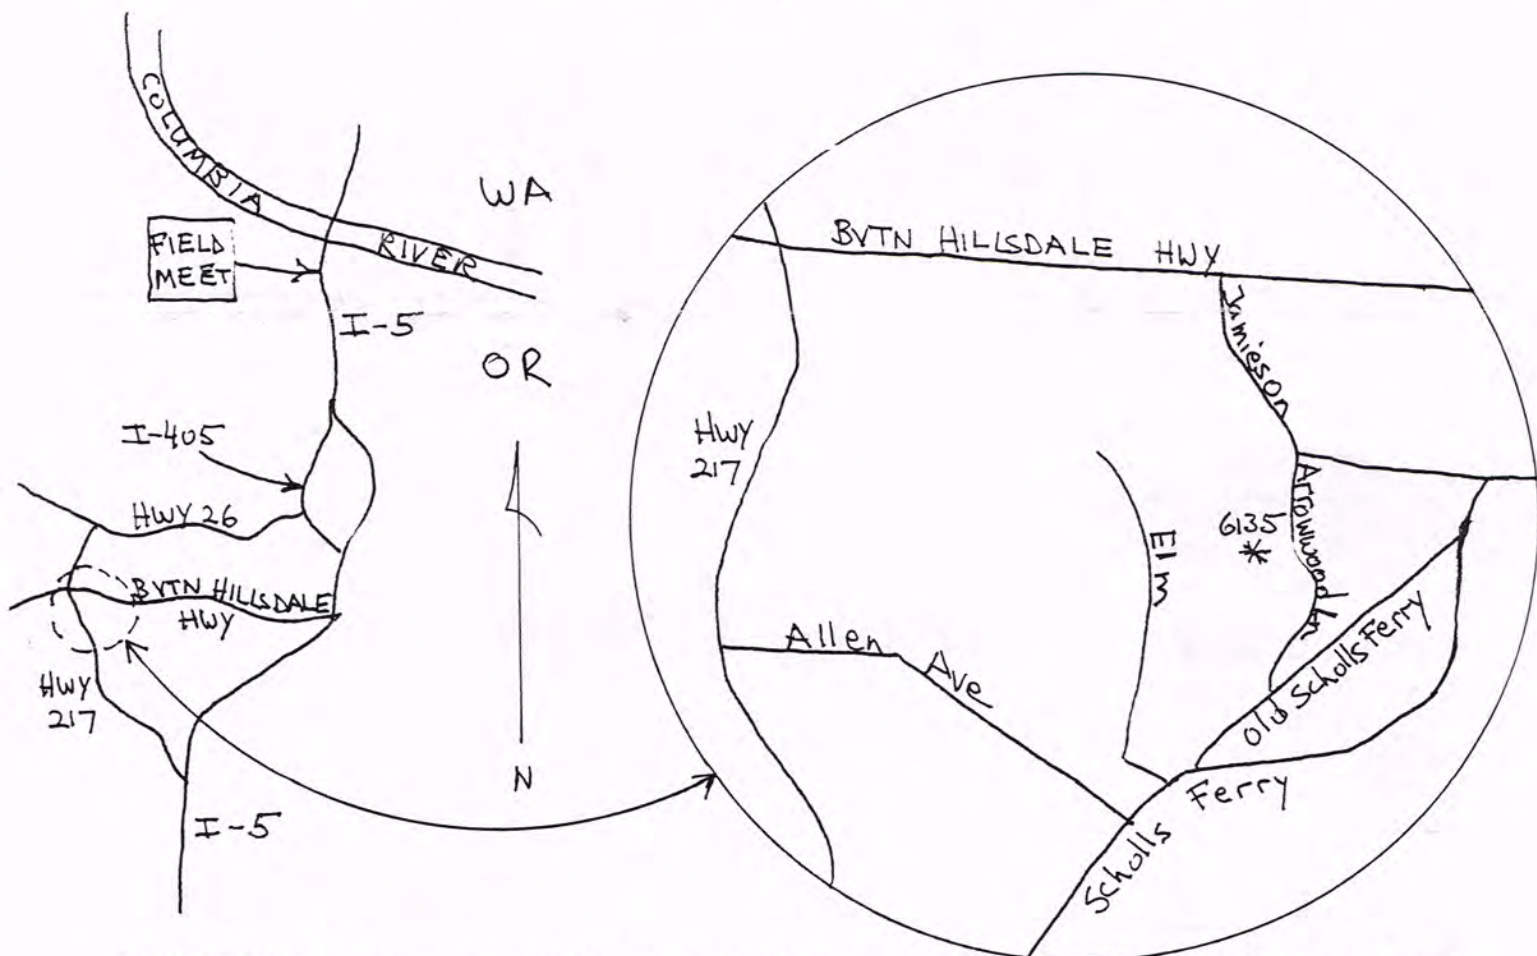 COLUMBIA
RIVER
WA
FIELD
MEET
I-5
OR
I-405
HWY 26
BVTN HILLSDALE
HWY
HWY
217
I-5
N
BVTN HILLSDALE HWY
Jamieson
HWY
217
Arrowwood Ln
6135
*
Elm
Allen Ave
Old Scholls Ferry
Scholls Ferry